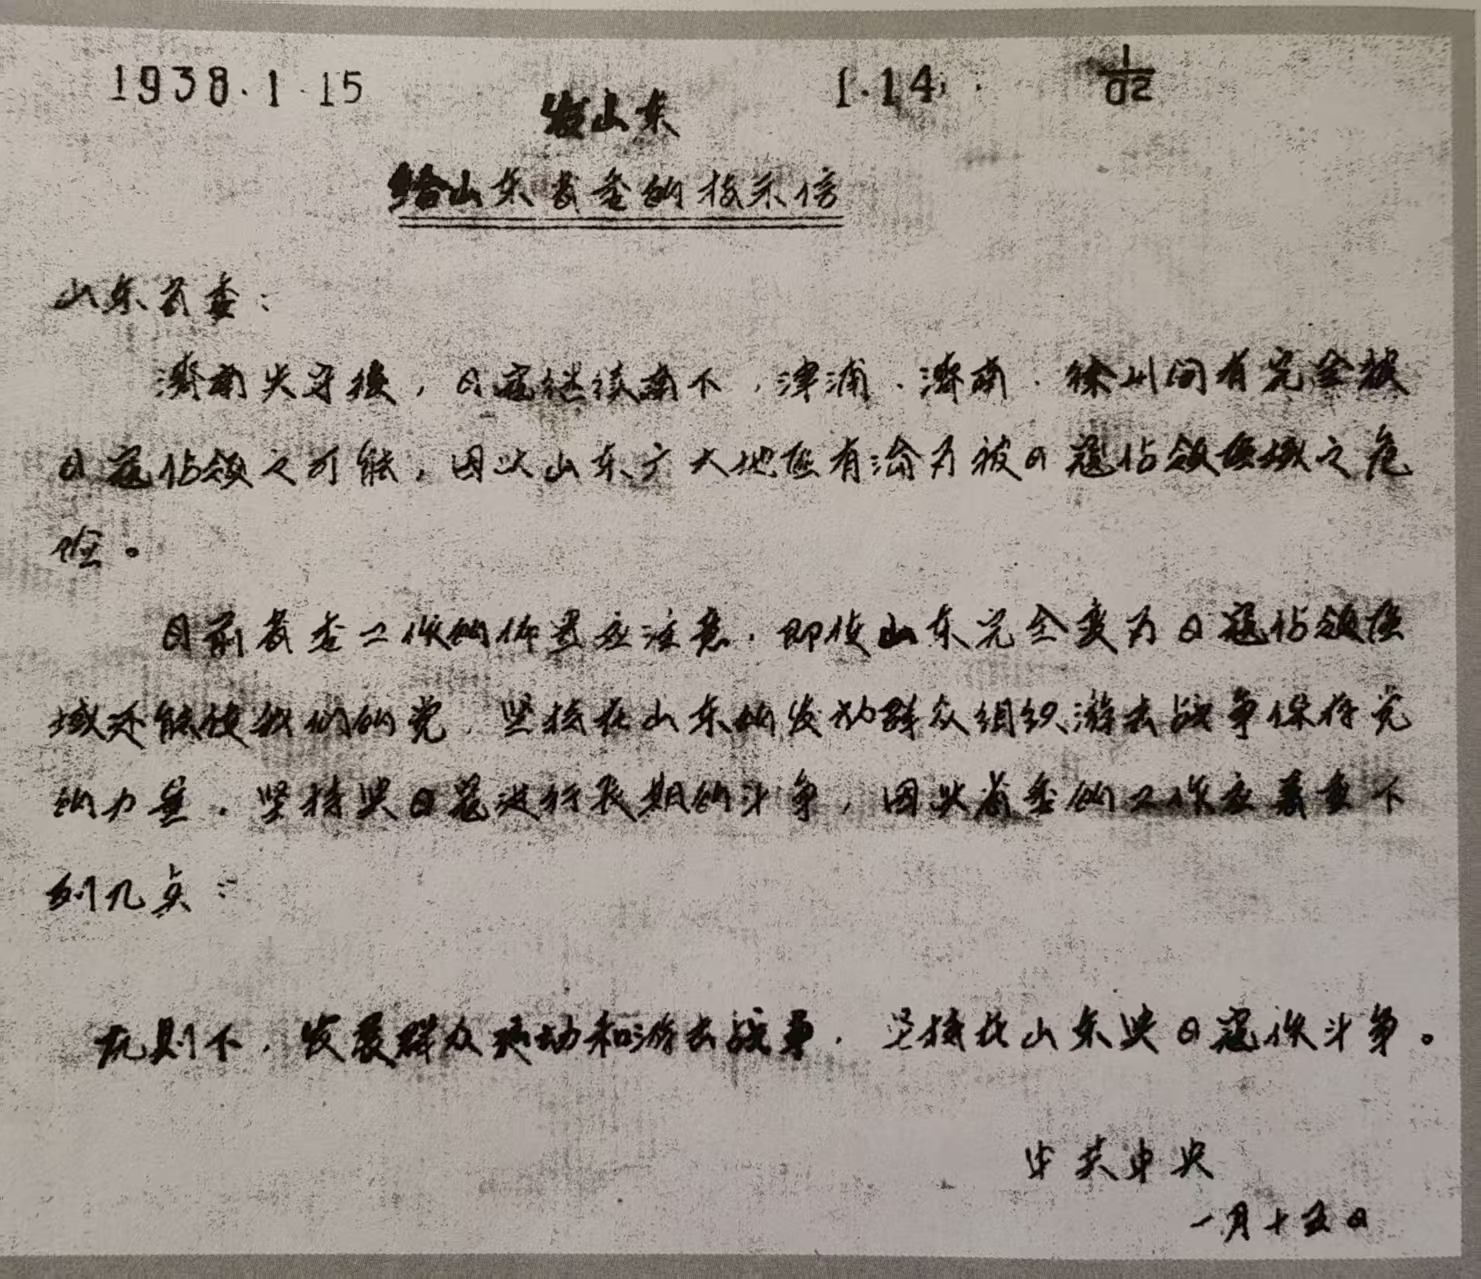 1938.1.15 1.14 1/02
发山东
给山东省委的指示信
山东省委：
济南失守后，日寇继续南下，津浦、济南、徐州间有完全被
日寇占领之可能，因此山东广大地区有沦为被日寇占领区域之危
险。
目前省委工作的佈置应注意，即使山东完全变为日寇占领区
域还能使我们的党，坚持在山东的发动群众组织游击战争保存党
的力量，坚持与日寇进行长期的斗争，因此省委的工作应着重下
列几点：
原则下，发展群众运动和游击战争，坚持在山东与日寇作斗争。
中共中央
一月十五日